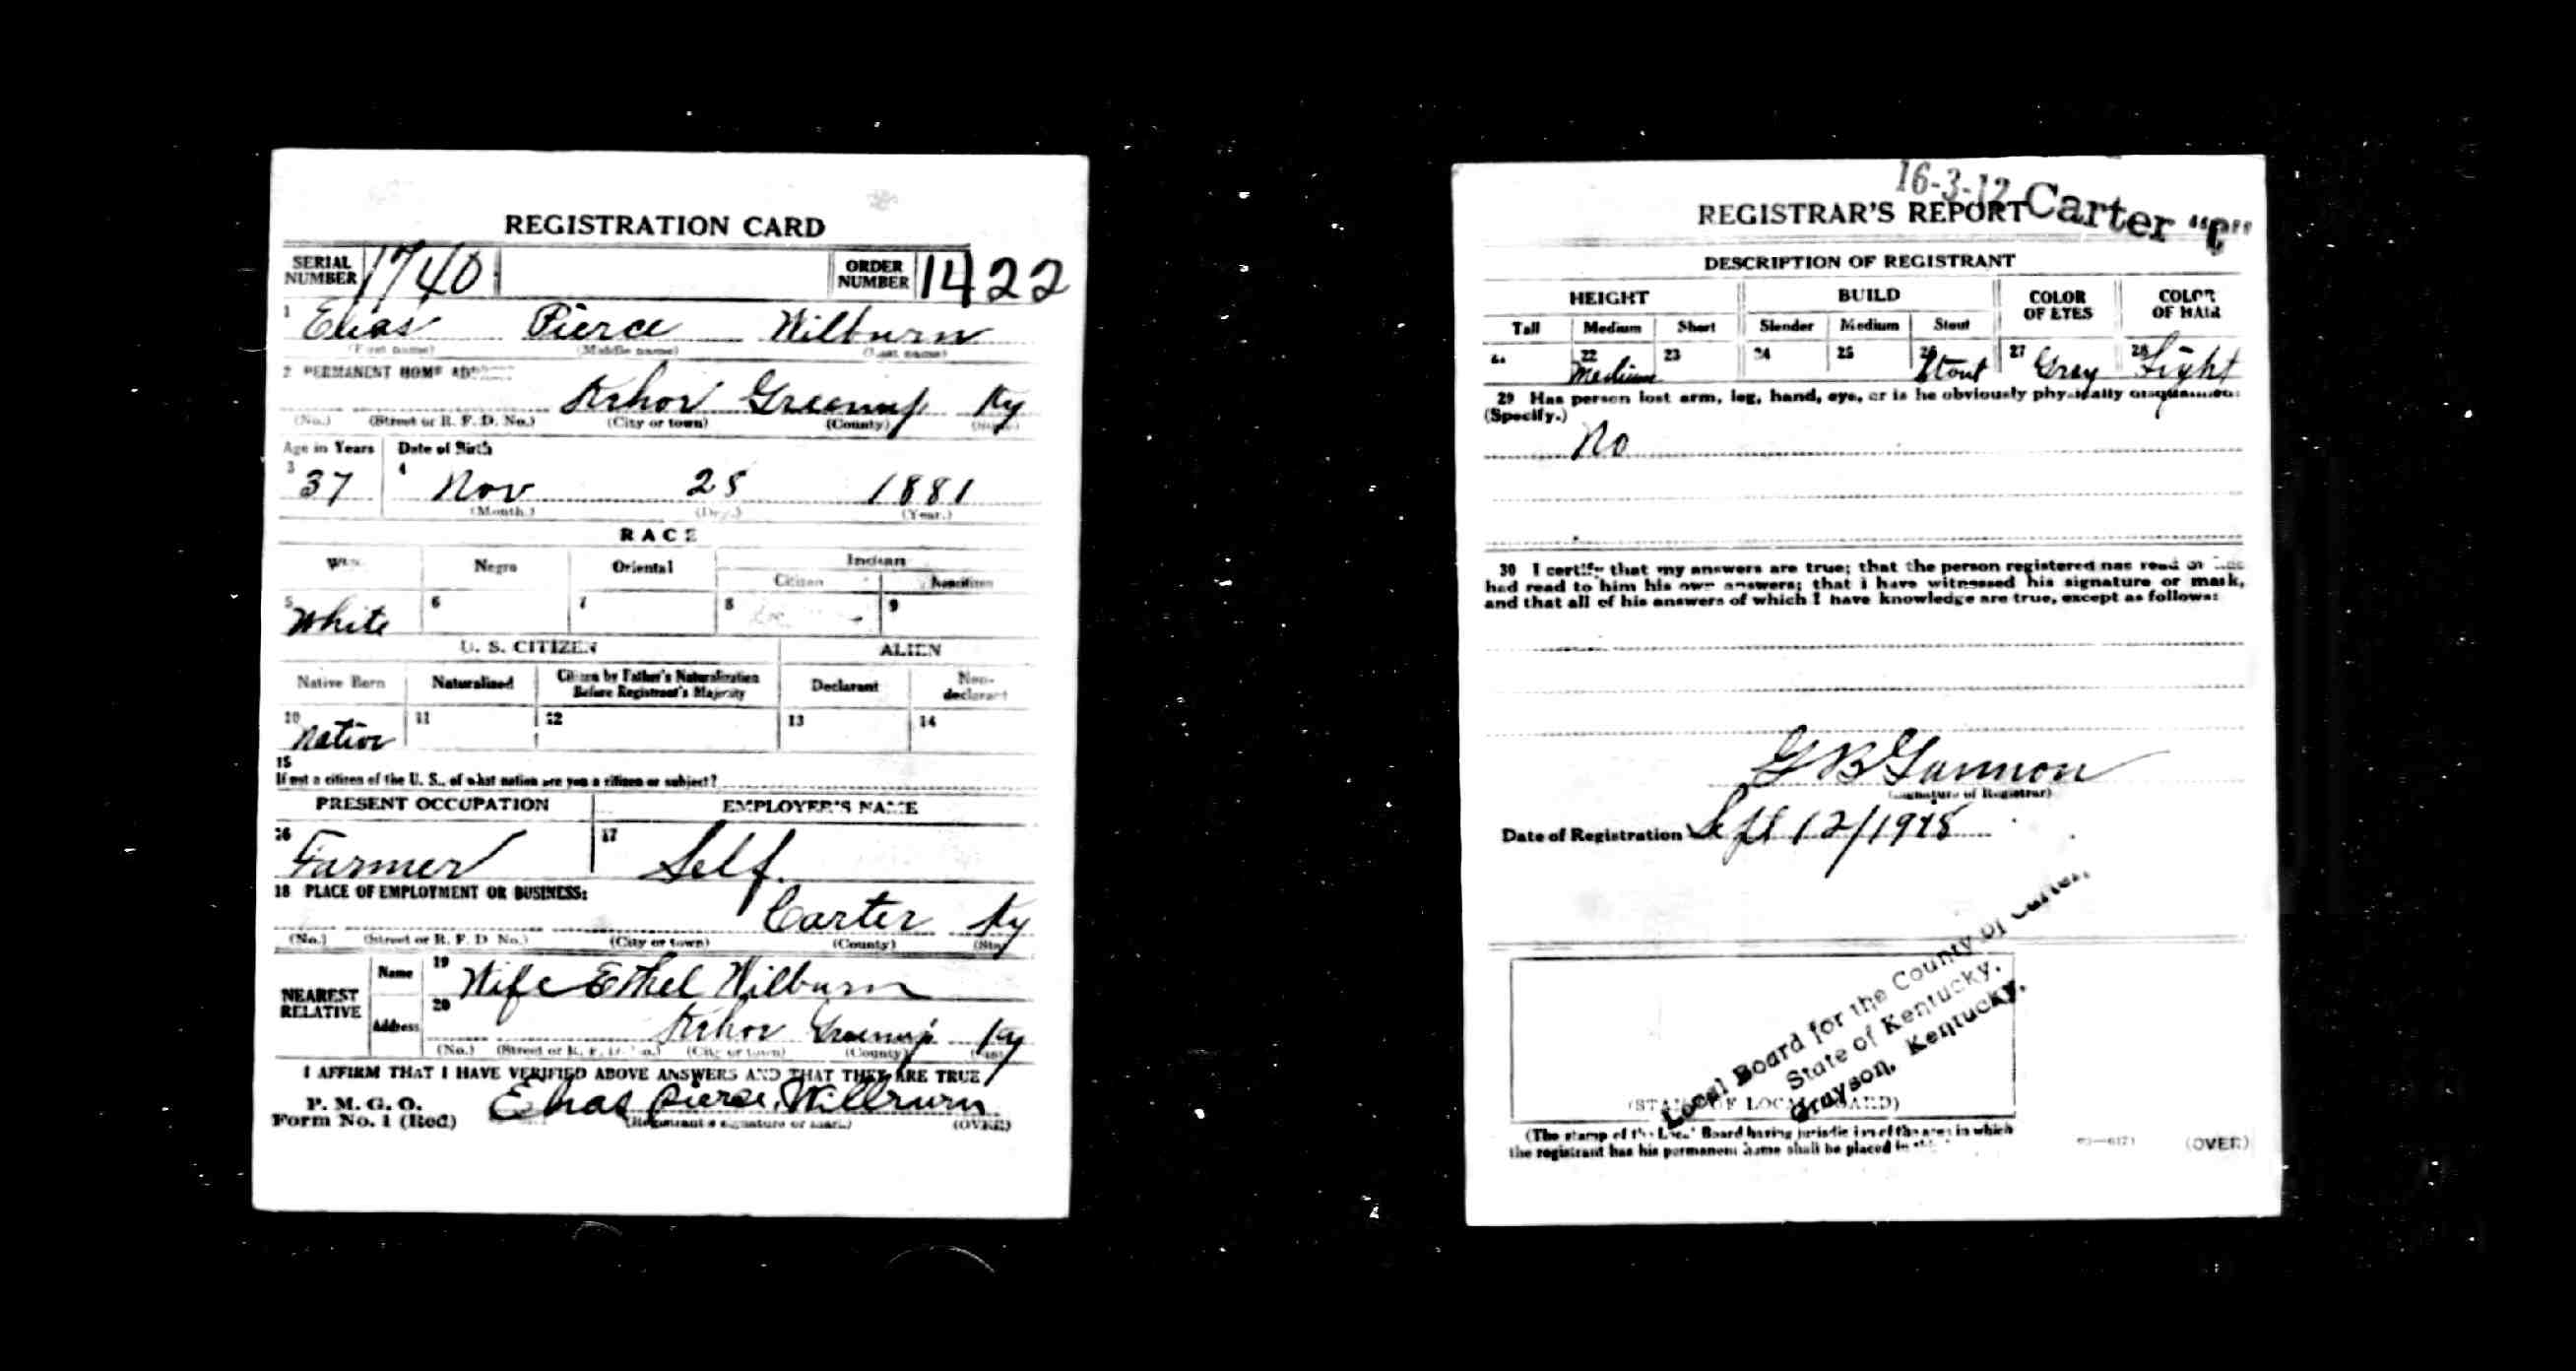 REGISTRATION CARD
SERIAL NUMBER 1740 ORDER NUMBER 1422
1 Elias Pierce Wilburn
(First name) (Middle name) (Last name)
2 PERMANENT HOME
Greenup Ky
(No.) (Street or R. F. D. No.) (City or town) (County)
Age in Years Date of Birth
3 37 4 Nov 28 1881
(Month.) (Day.) (Year.)
RACE
Negro Oriental Indian
Citizen Noncitizen
5 White 6 7 8 9
U. S. CITIZEN ALIEN
Native Born Naturalized Citizen by Father's Naturalization Before Registrant's Majority Declarant Non-declarant
10 Native 11 12 13 14
15
If not a citizen of the U. S., of what nation are you a citizen or subject?
PRESENT OCCUPATION EMPLOYER'S NAME
16 Farmer 17 Self.
18 PLACE OF EMPLOYMENT OR BUSINESS:
Carter Ky
(No.) (Street or R. F. D. No.) (City or town) (County)
NEAREST RELATIVE
Name 19 Wife Ethel Wilburn
Address 20 Greenup Ky
(No.) (Street or R. F. D. No.) (City or town) (County)
I AFFIRM THAT I HAVE VERIFIED ABOVE ANSWERS AND THAT THEY ARE TRUE
P. M. G. O.
Form No. 1 (Red) Elias Pierce Willburn
(Registrant's signature or mark) (OVER)
16-3-12 Carter "C"
REGISTRAR'S REPORT
DESCRIPTION OF REGISTRANT
HEIGHT BUILD COLOR OF EYES COLOR OF HAIR
Tall Medium Short Slender Medium Stout
22 Medium 23 24 25 26 Stout 27 Gray 28 Light
29 Has person lost arm, leg, hand, eye, or is he obviously physically
(Specify.)
No
30 I certify that my answers are true; that the person registered has read or
had read to him his own answers; that I have witnessed his signature or mark,
and that all of his answers of which I have knowledge are true, except as follows:
G B Gannon
(Signature of Registrar)
Date of Registration Sept 12/1918
Local Board for the County of Carter,
State of Kentucky,
Grayson, Kentucky.
(STAMP OF LOCAL BOARD)
(The stamp of the Local Board having jurisdiction of the area in which
the registrant has his permanent home shall be placed in
(OVER)